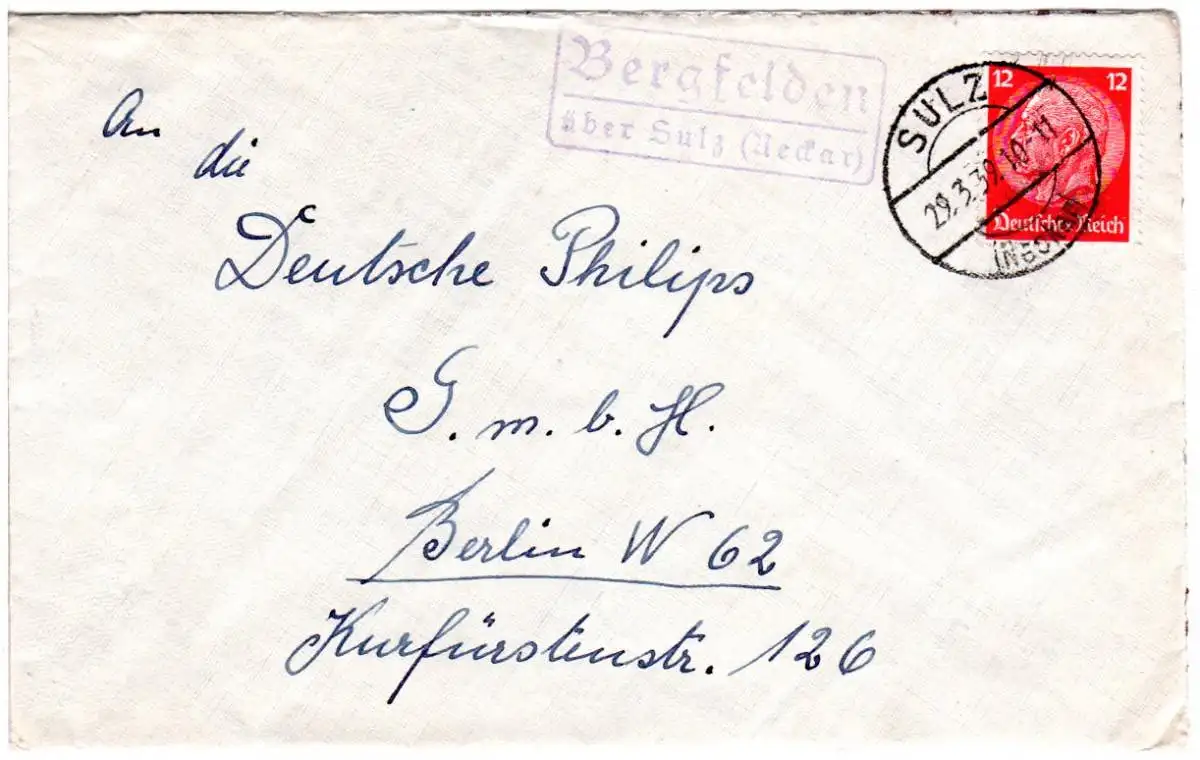 Bergfelden
über Sulz (Neckar)
SULZ
29.3.39.10-11
(NECKAR)
12 12
Deutsches Reich
An
die
Deutsche Philips
G. m. b. H.
Berlin W 62
Kurfürstenstr. 126